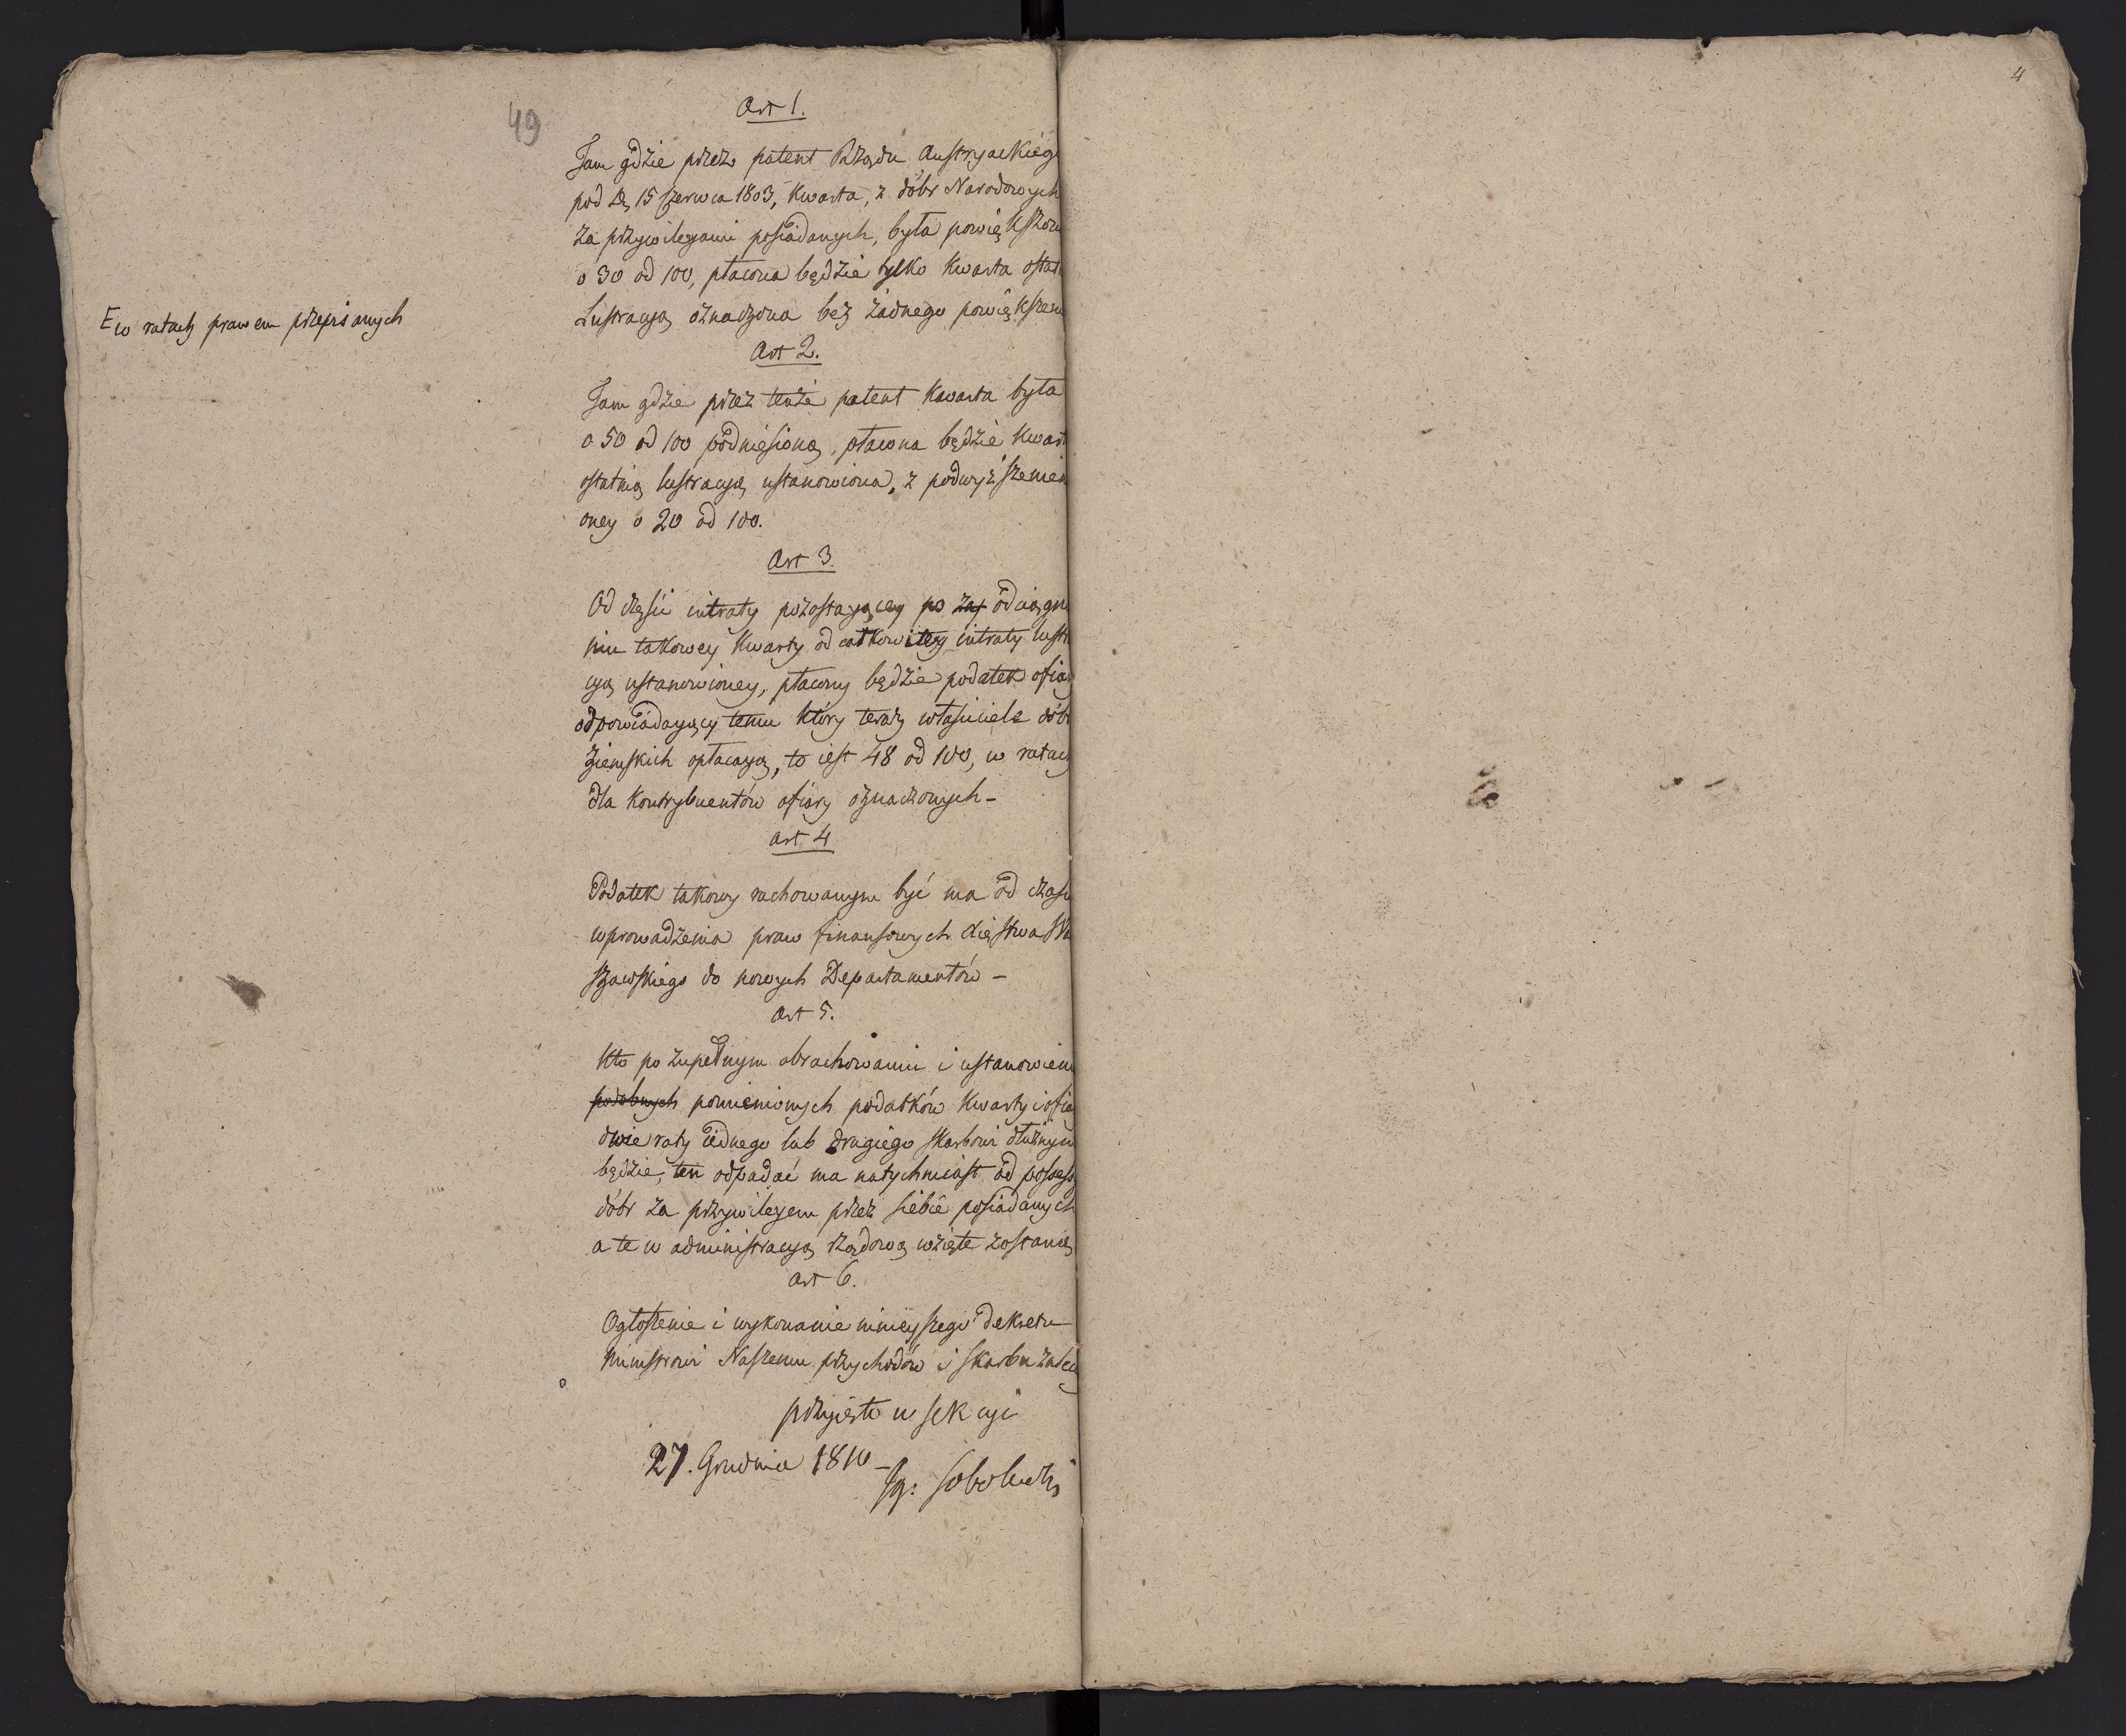 4
49
Art 1.
Tam gdzie przez patent Rządu Austryackiego
pod D. 15 Czerwca 1803, Kwarta, z dóbr Narodowych
za przywileiami posiadanych, była powiększon
o 30 od 100, płacona będzie tylko Kwarta ostat
Lustracyą oznaczona bez żadnego powiększen
w ratach prawem przepisanych
Art 2.
Tam gdzie przez tenże patent Kwarta była
o 50 od 100 podniesioną, płacona będzie Kwart
ostatnią lustracyą ustanowiona, z podwyższeniem
oney o 20 od 100.
Art 3.
Od części intraty pozostaiącey po zaf odciągn
niu takowey Kwarty od całkowitey intraty lustr
cyą ustanowioney, płacony będzie podatek ofiar
odpowiadaiący temu który teraz właściciele dób
ziemskich opłacaią, to iest 48 od 100, w ratach
dla Kontrybuentów ofiary oznaczonych -
Art 4
Podatek takowy rachowanym być ma od czasu
wprowadzenia praw finansowych Xięstwa Wa
szawskiego do nowych Departamentów -
Art 5.
Kto po zupełnym obrachowaniu i ustanowieni
podobnych pomienionych podatków Kwarty i ofiar
dwie raty iednego lub drugiego skarbowi dłużnym
będzie, ten odpadać ma natychmiast od possess
dóbr za przywileiem przez siebie posiadanych
a te w administracyą rządową wzięte zostaną
Art 6.
Ogłoszenie i wykonanie ninieyszego dekretu
Ministrowi Naszemu przychodów i skarbu zalec
przyięte w sekcyi
27. Grudnia 1810 -
Ig: Sobolewski